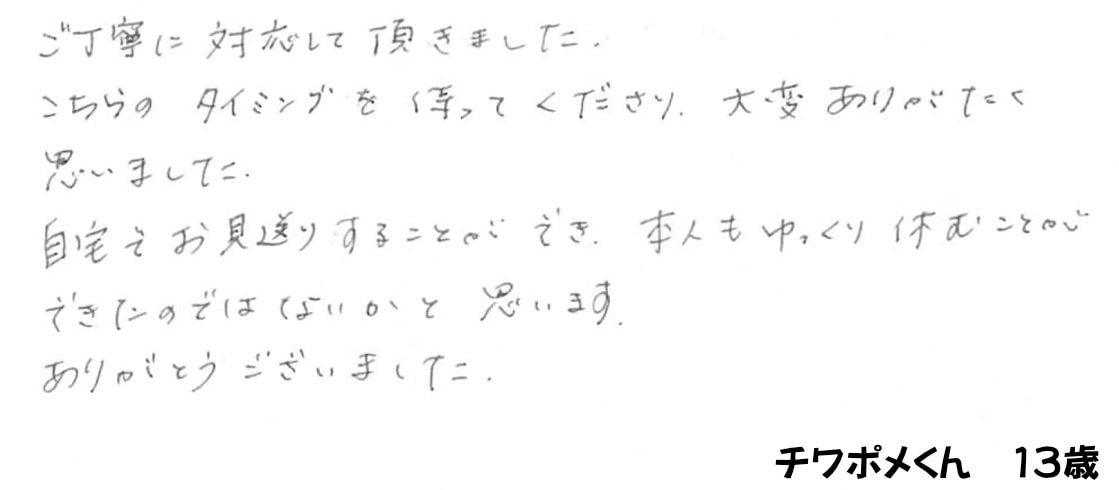 ご丁寧に対応して頂きました.
こちらの タイミングを 待ってくださり. 大変 ありがたく
思いました.
自宅でお見送りすることができ. 本人も ゆっくり 休むことが
できたのではないかと 思います.
ありがとうございました.
チワポメくん　13歳